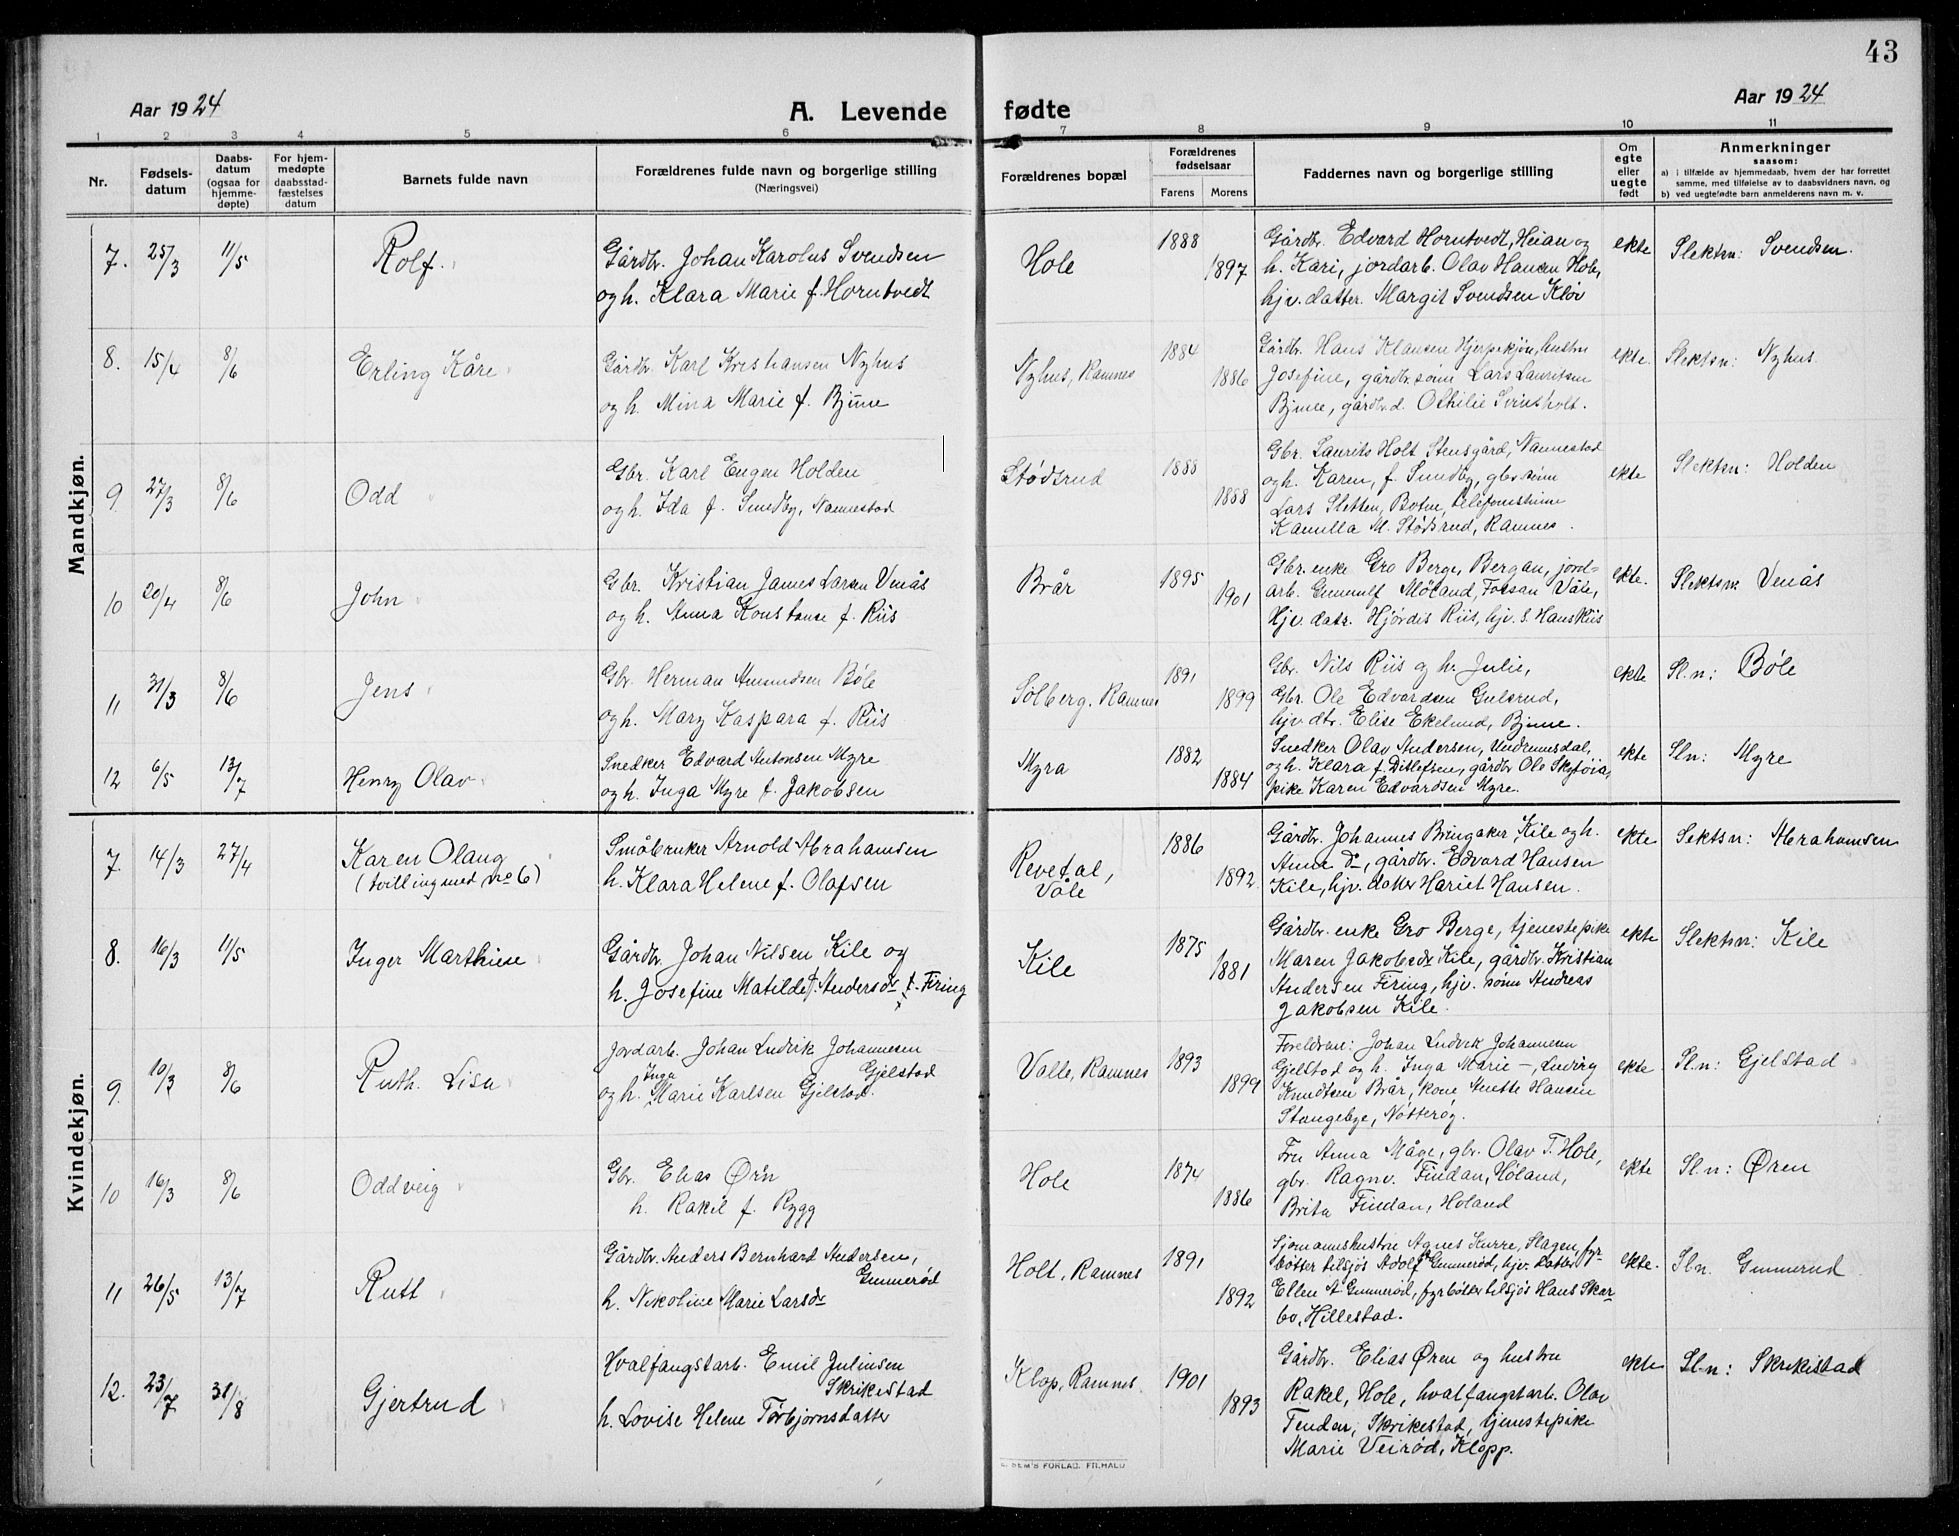 43
Aar 1924
A. Levende fødte
Aar 1924
1 2 3 4 5 6 7 8 9 10 11
Nr.
Fødsels-
datum
Daabs-
datum
(ogsaa for
hjemme-
døpte)
For hjem-
medøpte
daabsstad-
fæstelses
datum
Barnets fulde navn
Forældrenes fulde navn og borgerlige stilling
(Næringsvei)
Forældrenes bopæl
Forældrenes
fødselsaar
Farens Morens
Faddernes navn og borgerlige stilling
Om
egte
eller
uegte
født
Anmerkninger
saasom:
a) i tilfælde av hjemmedaab, hvem der har forrettet
samme, med tilføielse av to daabsvidners navn, og
b) ved uegtefødte barn anmelderens navn m. v.
Mandkjøn.
7. 25/3 11/5 Rolf.
Gårdbr. Johan Karolus Svendsen
og h. Klara Marie f. Horntvedt
Hole 1888 1897
Gårdbr. Edvard Horntvedt, Heian og
h. Kari, jordarb. Olav Hansen Hole,
hjv. datter. Margit Svendsen Kløv
ekte Slektsn: Svendsen.
8. 15/4 8/6 Erling Kåre
Gårdbr. Karl Kristiansen Nyhus
og h. Mina Marie f. Bjune
Nyhus, Ramnes 1884 1886
Gårdbr. Hans Klausen Hjerpekjøn, hustru
Josefine, gårdbr. sønn Lars Lauritsen
Bjune, gårdbr.d. Othilie Svinsholt.
ekte. Slektsn: Nyhus.
9. 27/3 8/6 Odd
Gbr. Karl Eugen Holden
og h. Ida f. Sundby, Nannestad
Stødsrud 1888 1888
Gbr. Laurits Holt Stensgård, Nannestad
og h. Karen, f. Sundby, gbr sønn
Lars Sletten, Botne, telefonistinne
Kamilla M. Stødsrud, Ramnes.
ekte Slektsn: Holden
10 20/4 8/6 John
Gbr. Kristian James Larsen Venås
og h. Anna Konstanse f. Riis
Brår 1895 1901
Gbr. enke Gro Berge, Bergan, jord-
arb. Gunnulf Møland, Fossan Våle,
Hjv. datr. Hjördis Riis, hjv. s. Hans Riis
ekte. Slektsn: Venås
11 31/3 8/6 Jens
Gbr. Herman Amundsen Bøle
og h. Mary Kaspara f. Riis
Solberg, Ramnes 1891 1899
Gbr. Nils Riis og h. Julie,
Gbr. Ole Edvardsen Gulsrud,
hjv. dtr. Elise Ekelund, Bjune.
ekte Sl.n: Bøle
12 6/5 13/7 Henry Olav
Snedker Edvard Antonsen Myre
og h. Inga Myre f. Jakobsen
Myra 1882 1884
Snedker Olav Andersen, Undrumsdal,
og h. Klara f. Ditlefsen, gårdbr Ole
pike Karen Edvardsen Myre.
ekte Sln: Myre
Kvindekjøn.
7. 14/3 27/4 Karen Olaug
(tvilling med no 6)
Småbruker Arnold Abrahamsen
h. Klara Helene f. Olafsen
Revetal,
Våle
1886 1892
Gårdbr. Johannes Bringaker, Kile og h.
Anna do, gårdbr. Edvard Hansen
Kile, hjv. datter Hariet Hansen.
ekte Sektsn: Abrahamsen
8. 16/3 11/5 Inger Marthiese
Gårdbr. Johan Nilsen Kile og
h. Josefine Matilde Andersdr f. Firing
Kile 1875 1881
Gårdbr. enke Gro Berge, tjenestepike
Maren Jakobsdr Kile, gårdbr. Kristian
Andersen Firing, hjv. sønn Andreas
Jakobsen Kile.
ekte Slektsn: Kile
9. 10/3 8/6 Ruth Lisa
Jordarb. Johan Ludvik Johannesen
Gjelstad
og h. Inga Marie Karlsen Gjelstad.
Valle, Ramnes 1893 1899
Foreldrene: Johan Ludvik Johannesen
Gjelstad og h. Inga Marie —, Ludvig
Knudtsen Brår, kone Anette Hansen
Stangebye, Nøtterøy.
ekte. Sl.n: Gjelstad
10 16/3 8/6 Oddveig
Gbr. Elias Ørn
h. Rakel f. Rygg
Hole 1874 1886
Fru Anna Måge, gbr. Olav T. Hole,
gbr. Ragnv. Findan, Høland,
Brita Findan, Holand
ekte Sl.n: Øren
11 26/5 13/7 Rutt
Gårdbr. Anders Bernhard Andersen,
Gunnerød
h. Nikoline Marie Larsdr
Holt, Ramnes 1891 1892
Sjømannshustru Agnes Kurre, Slagen, fyr-
bøtter tilsjøs Adolf Gunnerød, hjv. datter
Ellen A. Gunnerød, fyrbøter tilsjøs Hans Skar-
bo, Hillestad.
ekte. Sl.n. Gunnerud
12. 23/7 31/8 Gjertrud
Hvalfangstarb. Emil Juliusen
Skrikestad
h. Lovise Helene Torbjørnsdatter
Klop, Ramnes. 1901 1893
Gårdbr. Elias Øren og hustru
Rakel, Hole, hvalfangstarb. Olav
Tendan, Skrikestad, tjenstepike
Marie Veirød, Klopp.
ekte Sl.n: Skrikistad
SEM'S FORLAG. FR. HALD